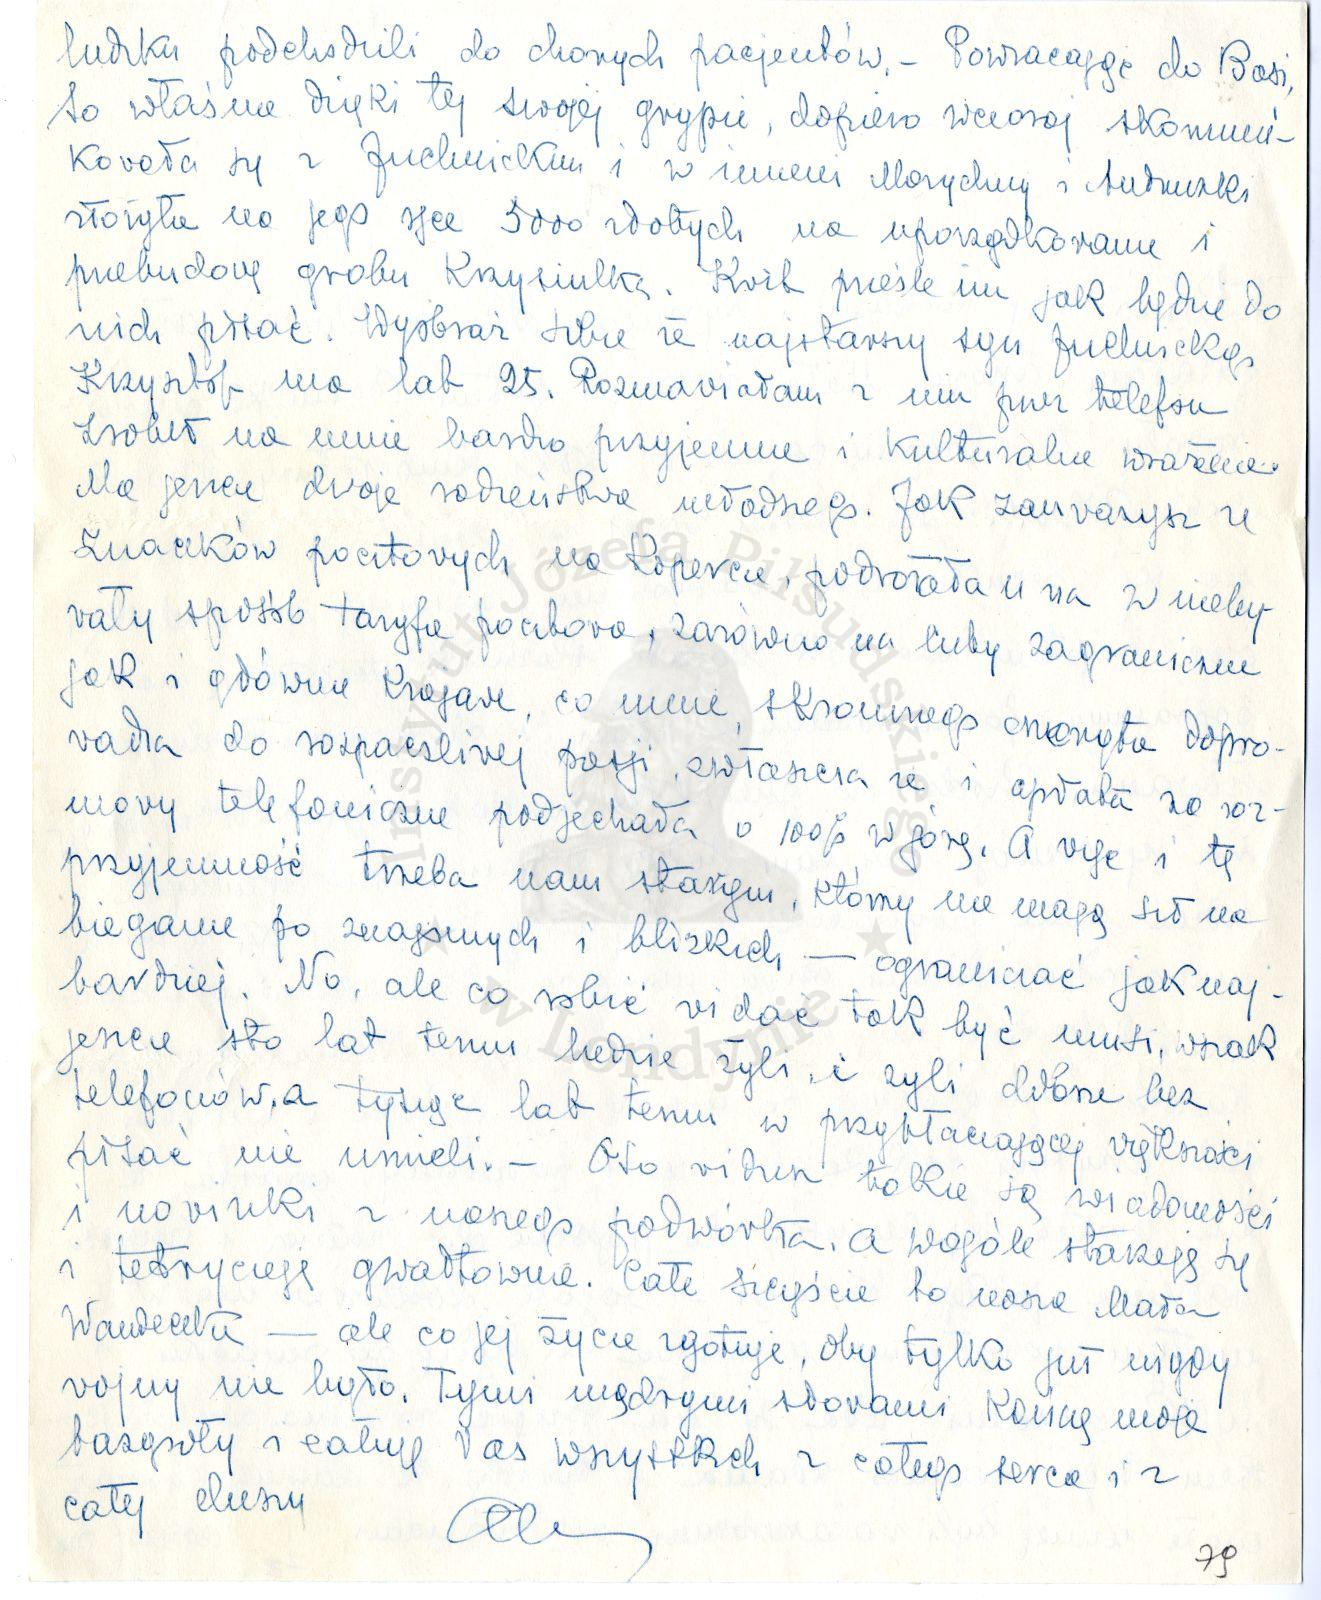 ludzku podchodzili do chorych pacjentów. – Powracając do Basi,
to właśnie dzięki tej swojej grypie, dopiero wczoraj skomuni-
kowała się z Juchnickim i w imieniu Marychny i Andruszki
złożyła na jego ręce 5000 złotych na uporządkowanie i
przebudowę grobu Krzysiulka. Kwit prześle im jak będzie do
nich pisać. Wyobraź sobie że najstarszy syn Juchnickego
Krzysztof ma lat 25. Rozmawiałam z nim przez telefon
zrobił na mnie bardzo przyjemne i kulturalne wrażenie.
Ma jeszcze dwoje rodzeństwa młodszego. Jak zauważysz ze
znaczków pocztowych na kopercie, podrożała u nas w nieby-
wały sposób taryfa pocztowa, zarówno na listy zagraniczne
jak i głównie krajowe, co mnie, skromnego
do rozpaczliwej pasji, zwłaszcza że i opłata za roz-
mowy telefoniczne podjechała o 100% w górę. A więc i tę
przyjemność trzeba nam starym, którzy nie mają sił na
bieganie po znajomych i bliskich — ograniczać jaknaj-
bardziej. No, ale co robić widać tak być musi, wszak
jeszcze sto lat temu ludzie żyli, i żyli dobrze bez
telefonów, a tysiąc lat temu w przytłaczającej większości
pisać nie umieli. – Oto widzisz takie są wiadomości
i nowinki z naszego podwórka. A wogóle starzeję się
i tetryczeję gwałtownie. Całe szczęście to nasza Mała
Wandeczka — ale co jej życie zgotuje, oby tylko już nigdy
wojny nie było. Tymi mądrymi słowami kończę moje
bazgroły i całuję Was wszystkich z całego serca i z
całej duszy
79
Instytut Józefa Piłsudskiego
w Londynie